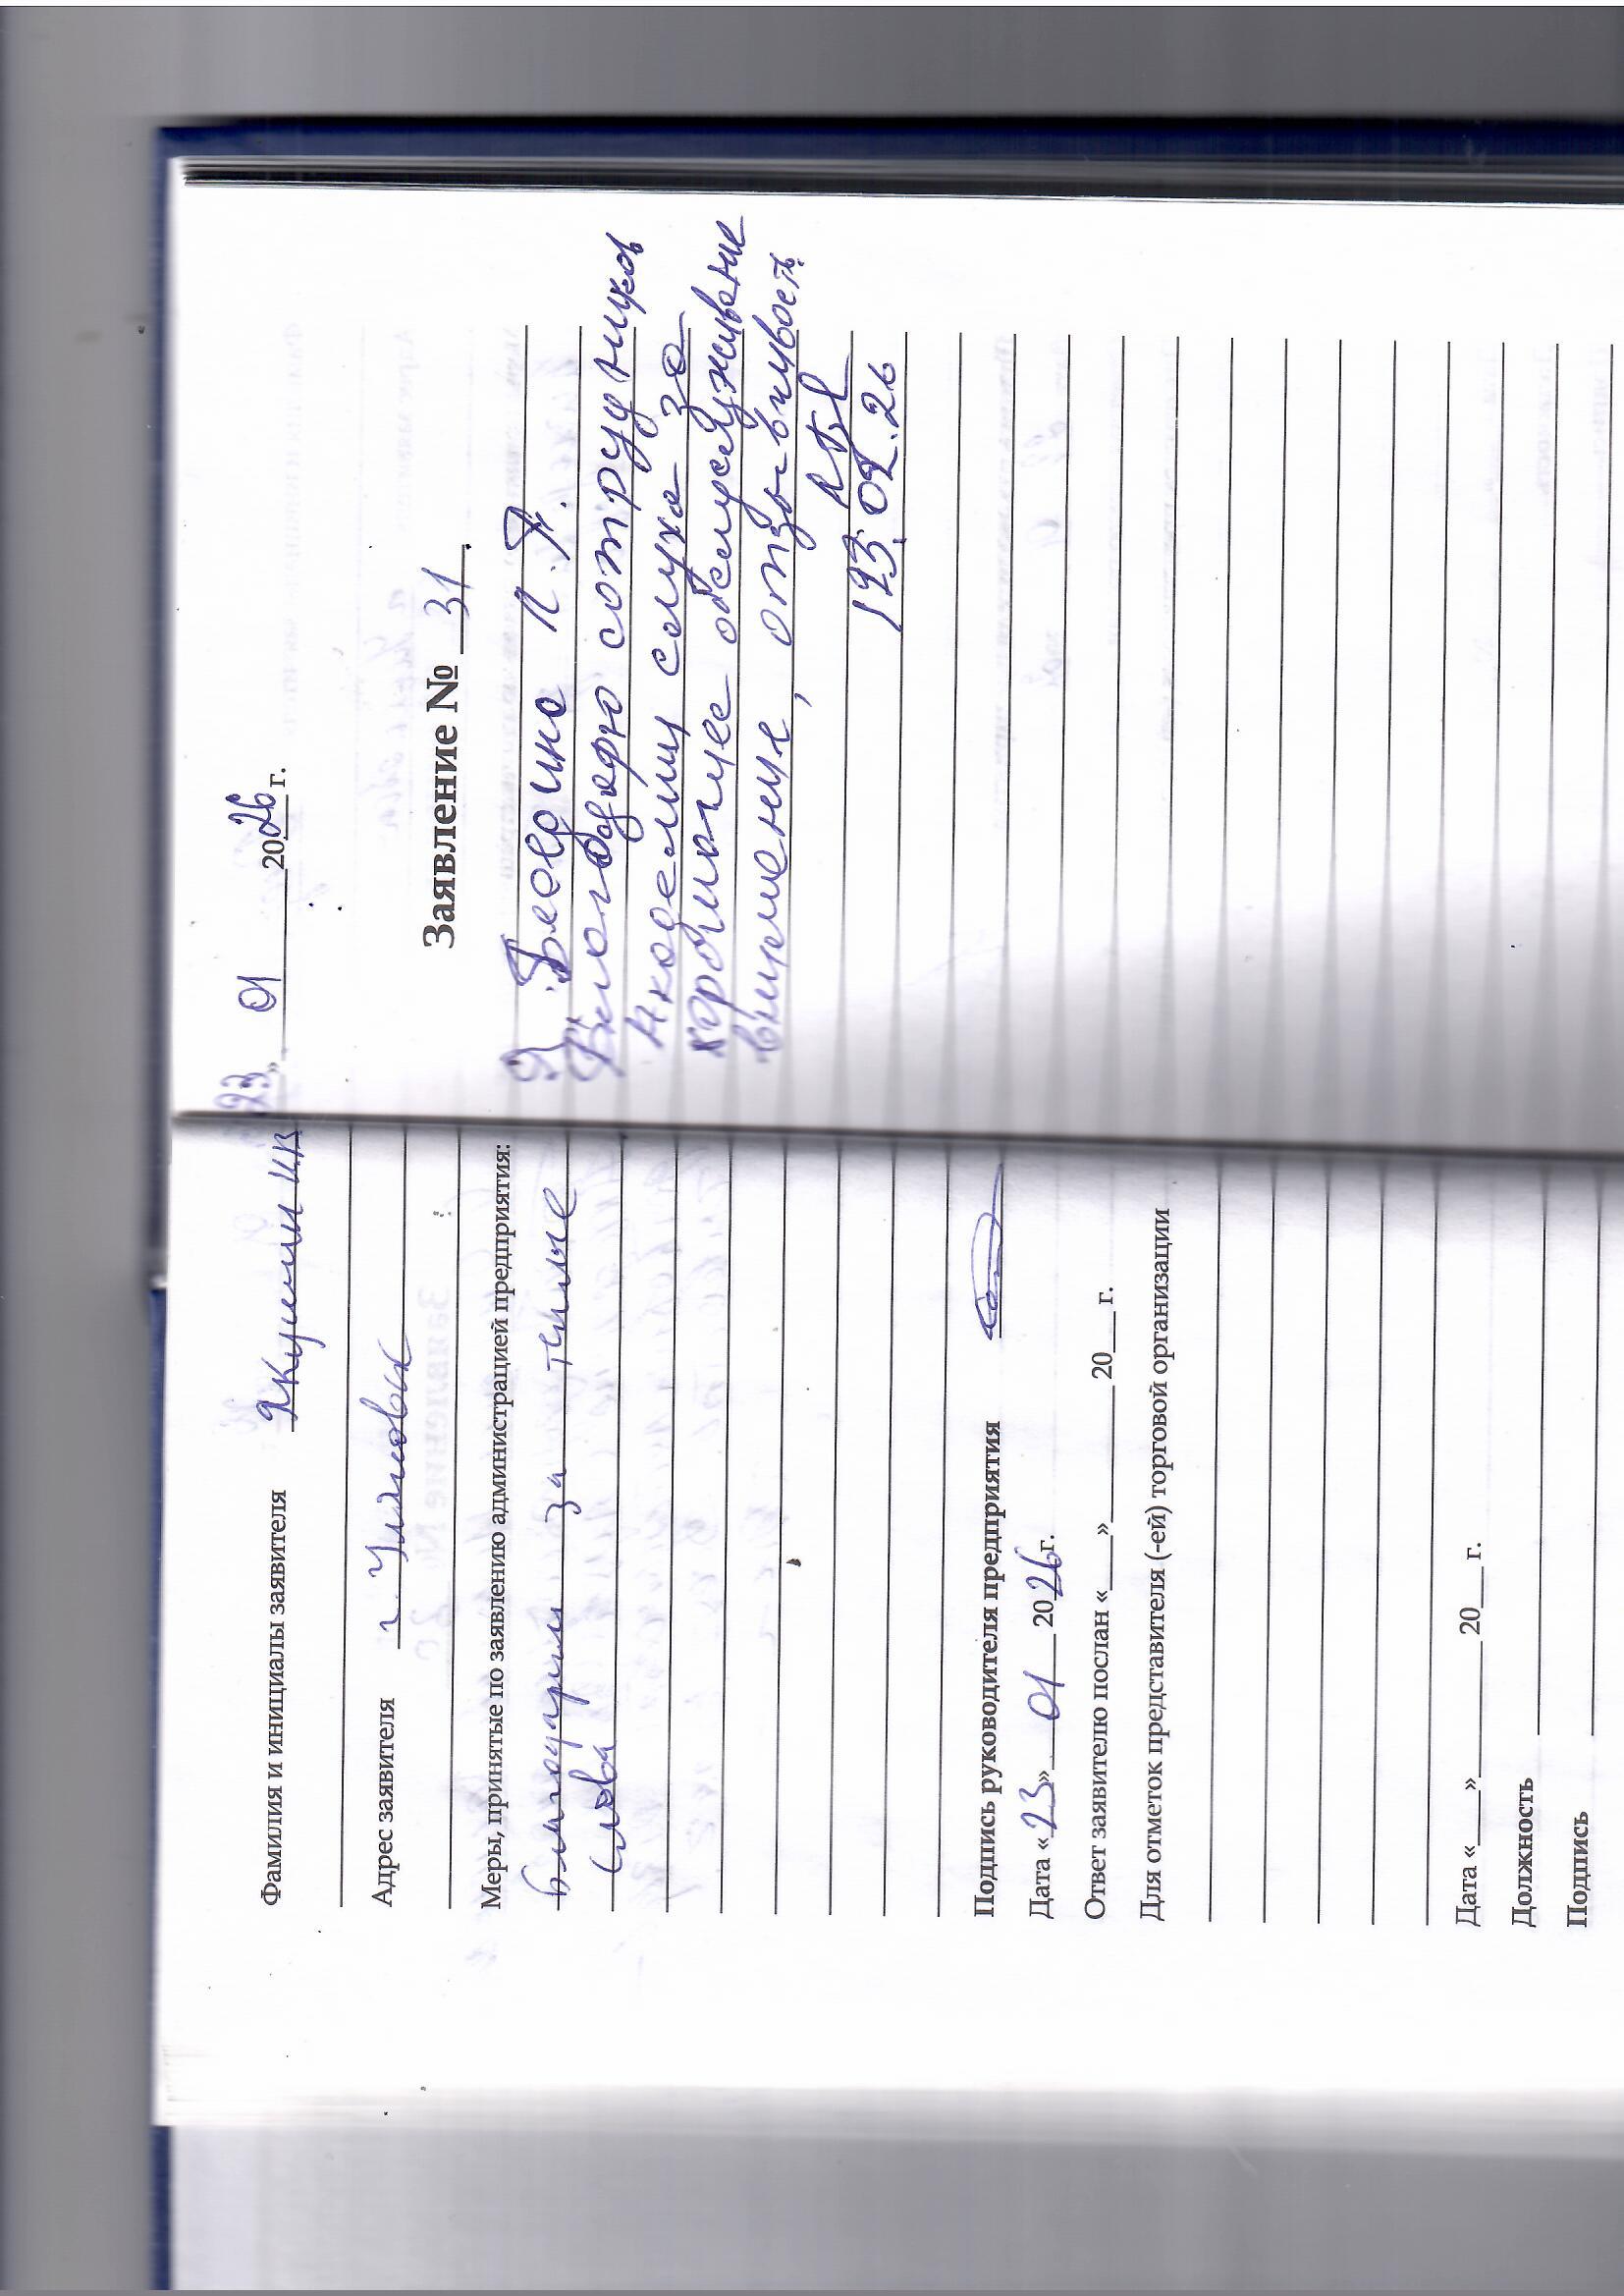 Фамилия и инициалы заявителя Якушин И.В
Адрес заявителя г. Ульяновск
Меры, принятые по заявлению администрацией предприятия:
благодарим за теплые
слова
Подпись руководителя предприятия
Дата «23» 01 2026 г.
Ответ заявителю послан «___» ______ 20__ г.
Для отметок представителя (-ей) торговой организации
Дата «___» ______ 20__ г.
Должность
Подпись
23» 01 2026 г.
Заявление № 31
Я, П. Я.
Благодарю сотрудников
Академии слуха за
хорошее обслуживание
внимение, отзывчивость.
23.01.26